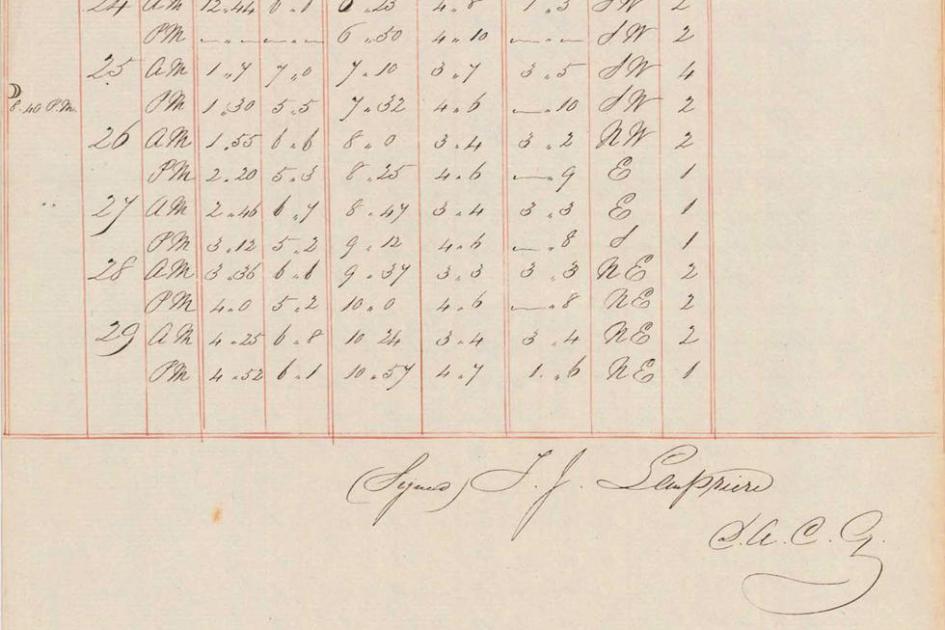 24 AM 12.44 6.1 6.23 4.8 1.3 SW 2
PM 6.50 4.10 SW 2
25 AM 1.7 7.0 7.10 3.7 3.5 SW 4
8.40 P.M. PM 1.30 5.5 7.32 4.6 —.10 SW 2
26 AM 1.55 6.6 8.0 3.4 3.2 NW 2
PM 2.20 5.3 8.25 4.6 —.9 E 1
27 AM 2.46 6.7 8.47 3.4 3.3 E 1
PM 3.12 5.2 9.12 4.6 —.8 S 1
28 AM 3.36 6.6 9.37 3.3 3.3 NE 2
PM 4.0 5.2 10.0 4.6 —.8 NE 2
29 AM 4.25 6.8 10 24 3.4 3.4 NE 2
PM 4.52 6.1 10.57 4.7 1.6 NE 1
(Signed) T. J. Lempriere
D. A. C. G.